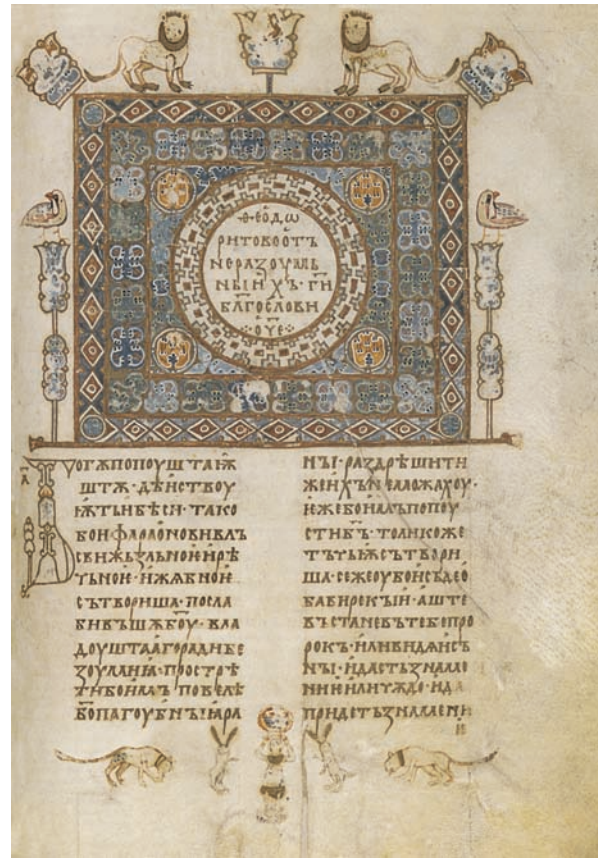 ·ѳ·еодѡ
ритовоотъ
неразоумь
ныихъ· г҃и
бл҃гослови
·о҃че·
Богѫпопоуштаѭ
штѫ· дѣиствоу
ѭтьибѣси· тако
боифараоновивлъ
свижьзльмоиирѣ
чьмои· ижѧбнои
сътвориша· посла
бивъшѫбоу· вла
доуштааграадибе
зоумиꙗ· прострѣ
тибоимъповелѣ
бопагоубьнъіꙗра
нъі· раздрѣшити
жеихънеможахоу·
ѥжебоимъпопоу
стибъ· толикоже
тъчьѭсътвори
ша· сежеоубоисъдео
бабирекъіи· аште
въстаневътебепро
рокъ· иливидѧисъ
нъі· идастьзнаме
ниѥиличюдо· ида
придетьзнамени
ѥ